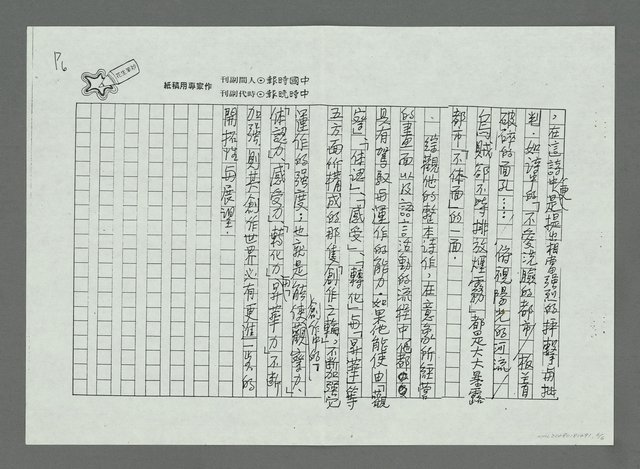 P6
中國時報⊙人間副刊
中時晚報⊙時代副刊
作家專用稿紙
，在這詩中是提出相當強烈的抨擊與批
判，如詩中的「不愛洗臉的都市／板着
破碎的面孔……／俯視陽光的河流／
白與賊卻不時排放煙霧」都是大大暴露
都市「不体面」的一面。
綜觀他的整本詩作，在意象所經營
的畫面以及語言活動的流程中，他都
具有駕馭與運作的能力，如果他能使由「觀
察」、「体認」、「感受」、「轉化」與「昇華」等
五方面所構成的那隻「創作之輪」，不斷加強它
運作的強度；也就是能使創作中的「觀察力、
「体認力」、「感受力」、「轉化力」與「昇華力」不斷
加強，則其創作世界必有更進一步的
開拓性與展望。